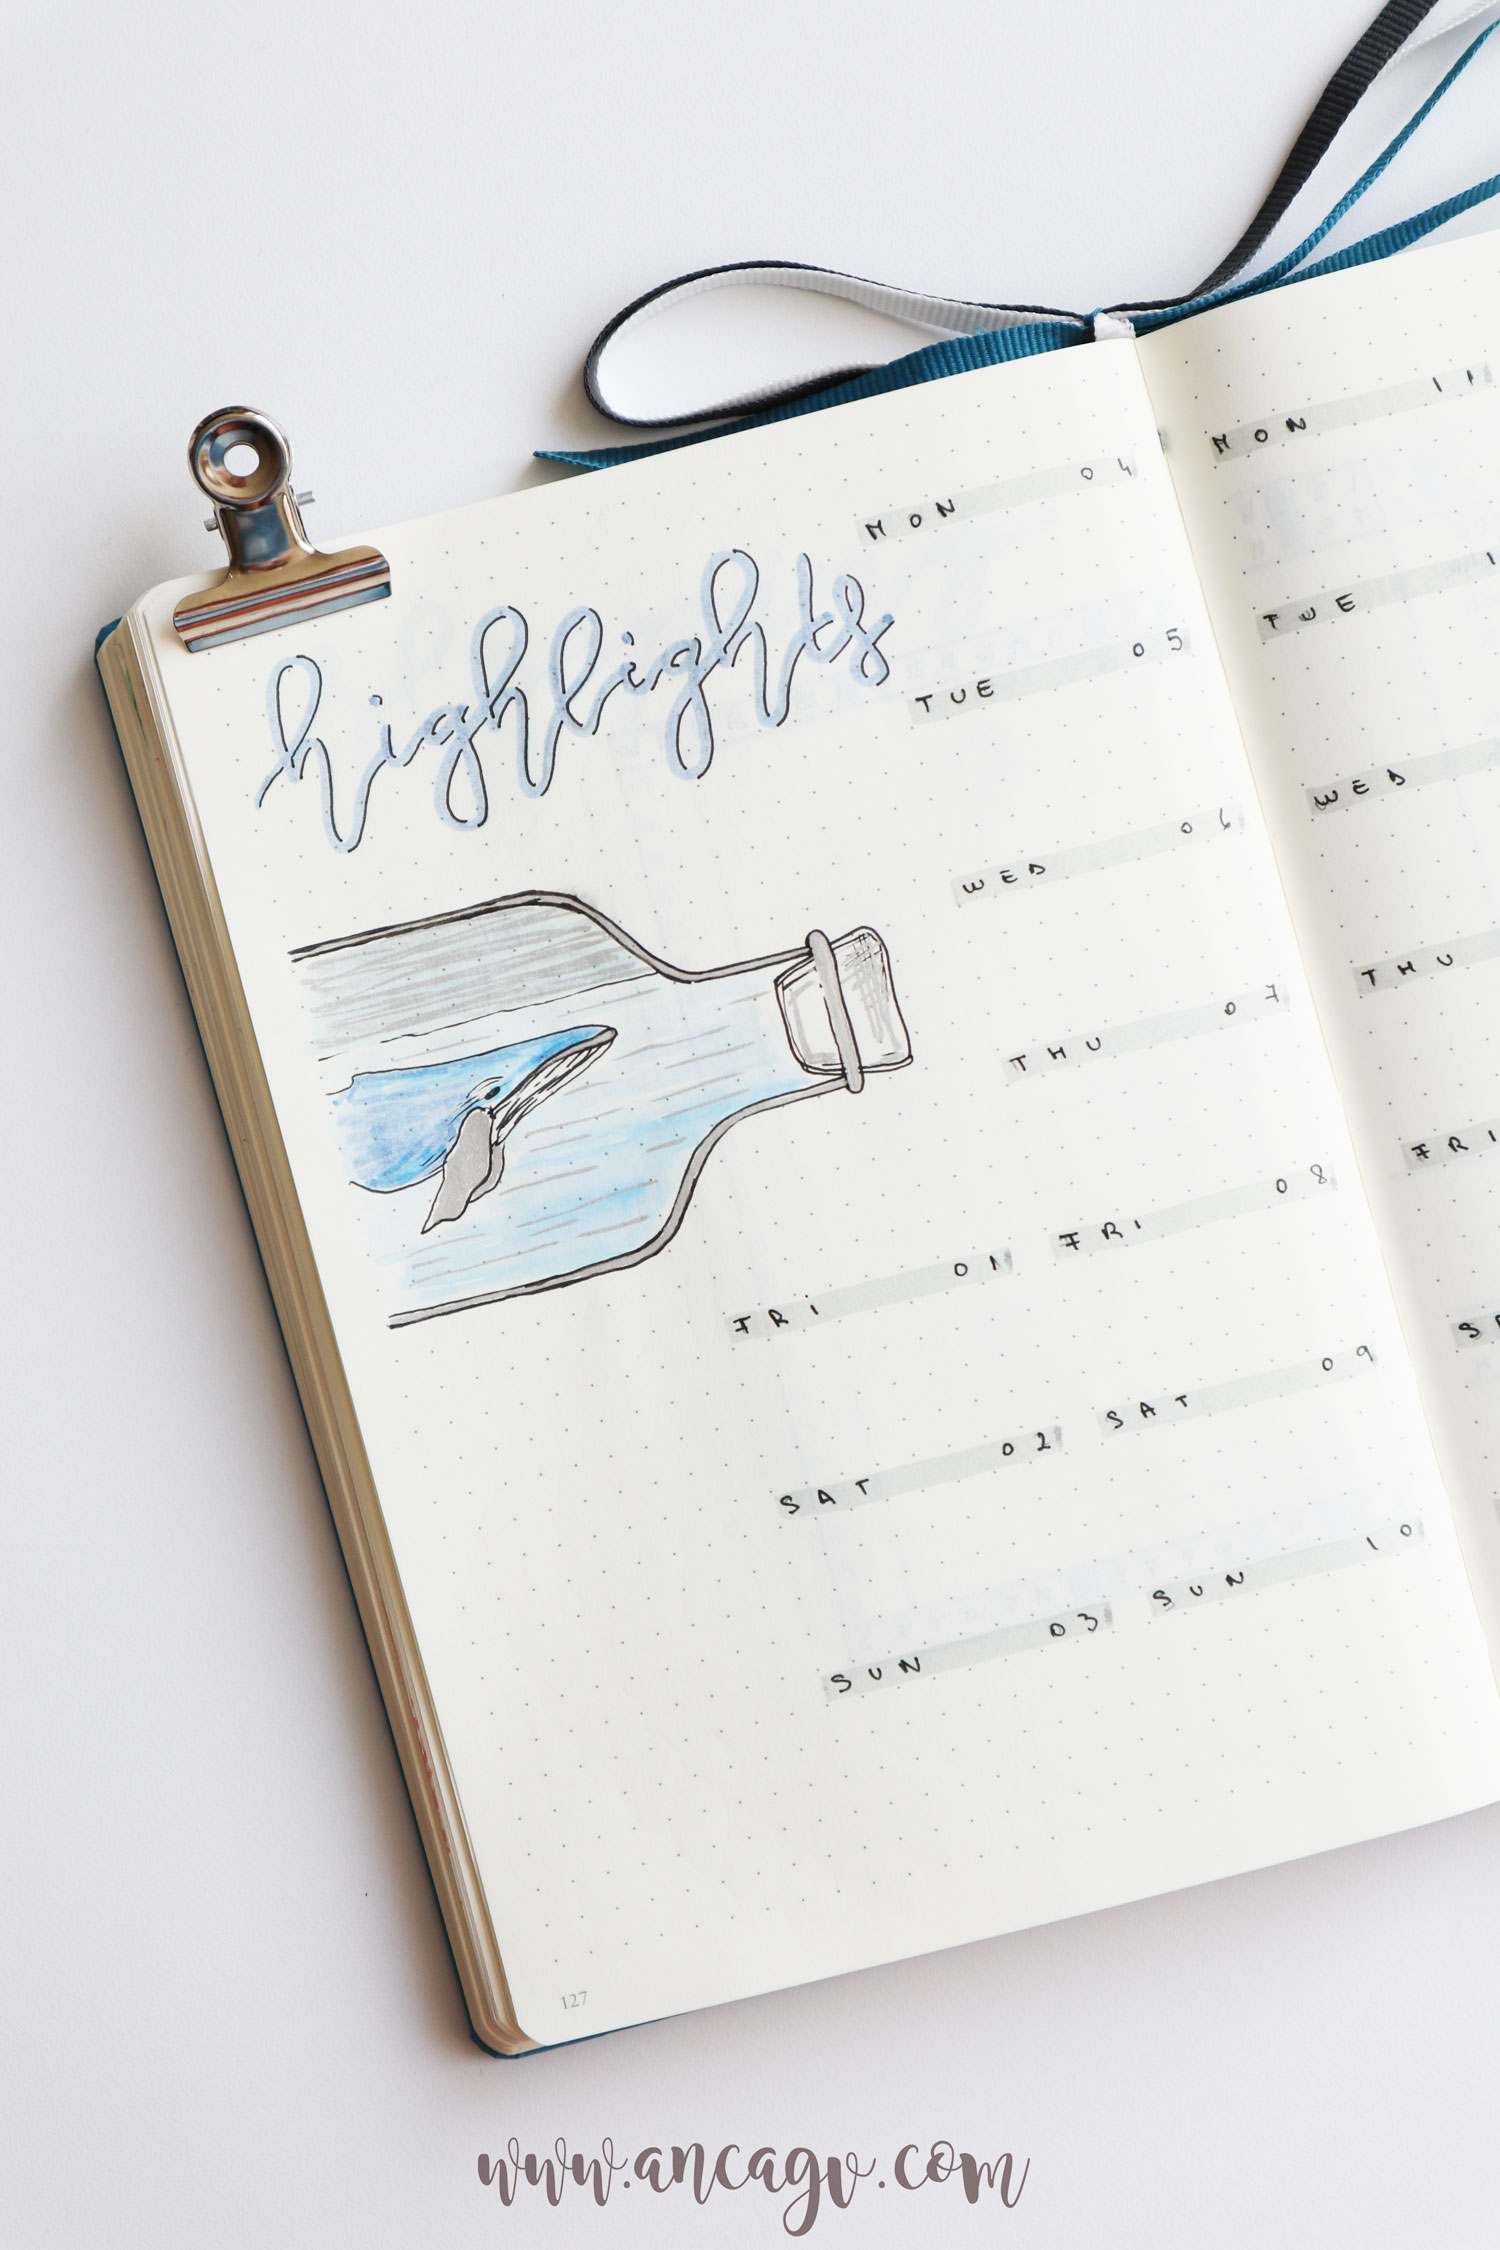 highlights
MON 04
TUE 05
WED 06
THU 07
FRI 01
FRI 08
SAT 02
SAT 09
SUN 03
SUN 10
127
MON 11
TUE 1
WED
THU
FRI
www.ancagv.com